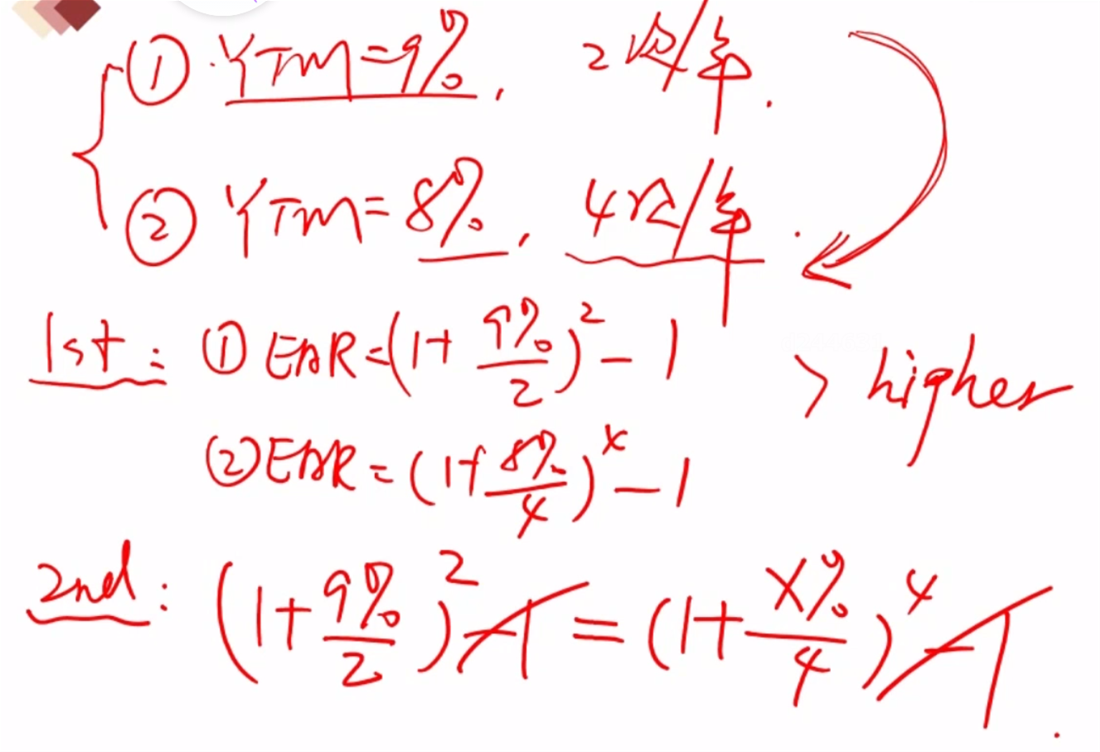 ① YTM=9%, 2次/年.
② YTM=8%, 4次/年.
1st: ① EAR=(1+9%/2)²-1
> higher
② EAR=(1+8%/4)⁴-1
2nd: (1+9%/2)²-1=(1+x%/4)⁴-1.